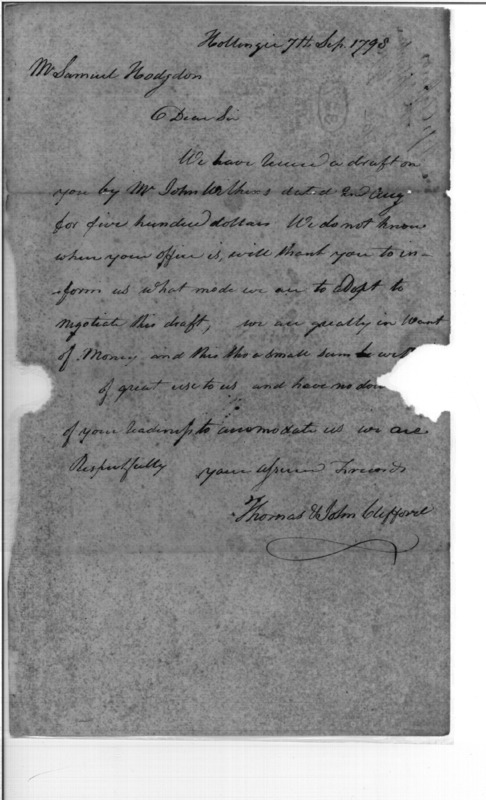 7th Sep. 1798
Mr Samuel Hodgdon
Dear Sir
We have a draft on
you by Mr John dated 2nd Aug
for five hundred dollars We do not know
when your office is, will thank you to in-
-form us what mode we are to adopt to
negotiate this draft, we are greatly in want
of Money and this tho a small sum
of great use to us and have no
of your readiness to accomodate us we are
Respectfully your
Thomas & John Clifford